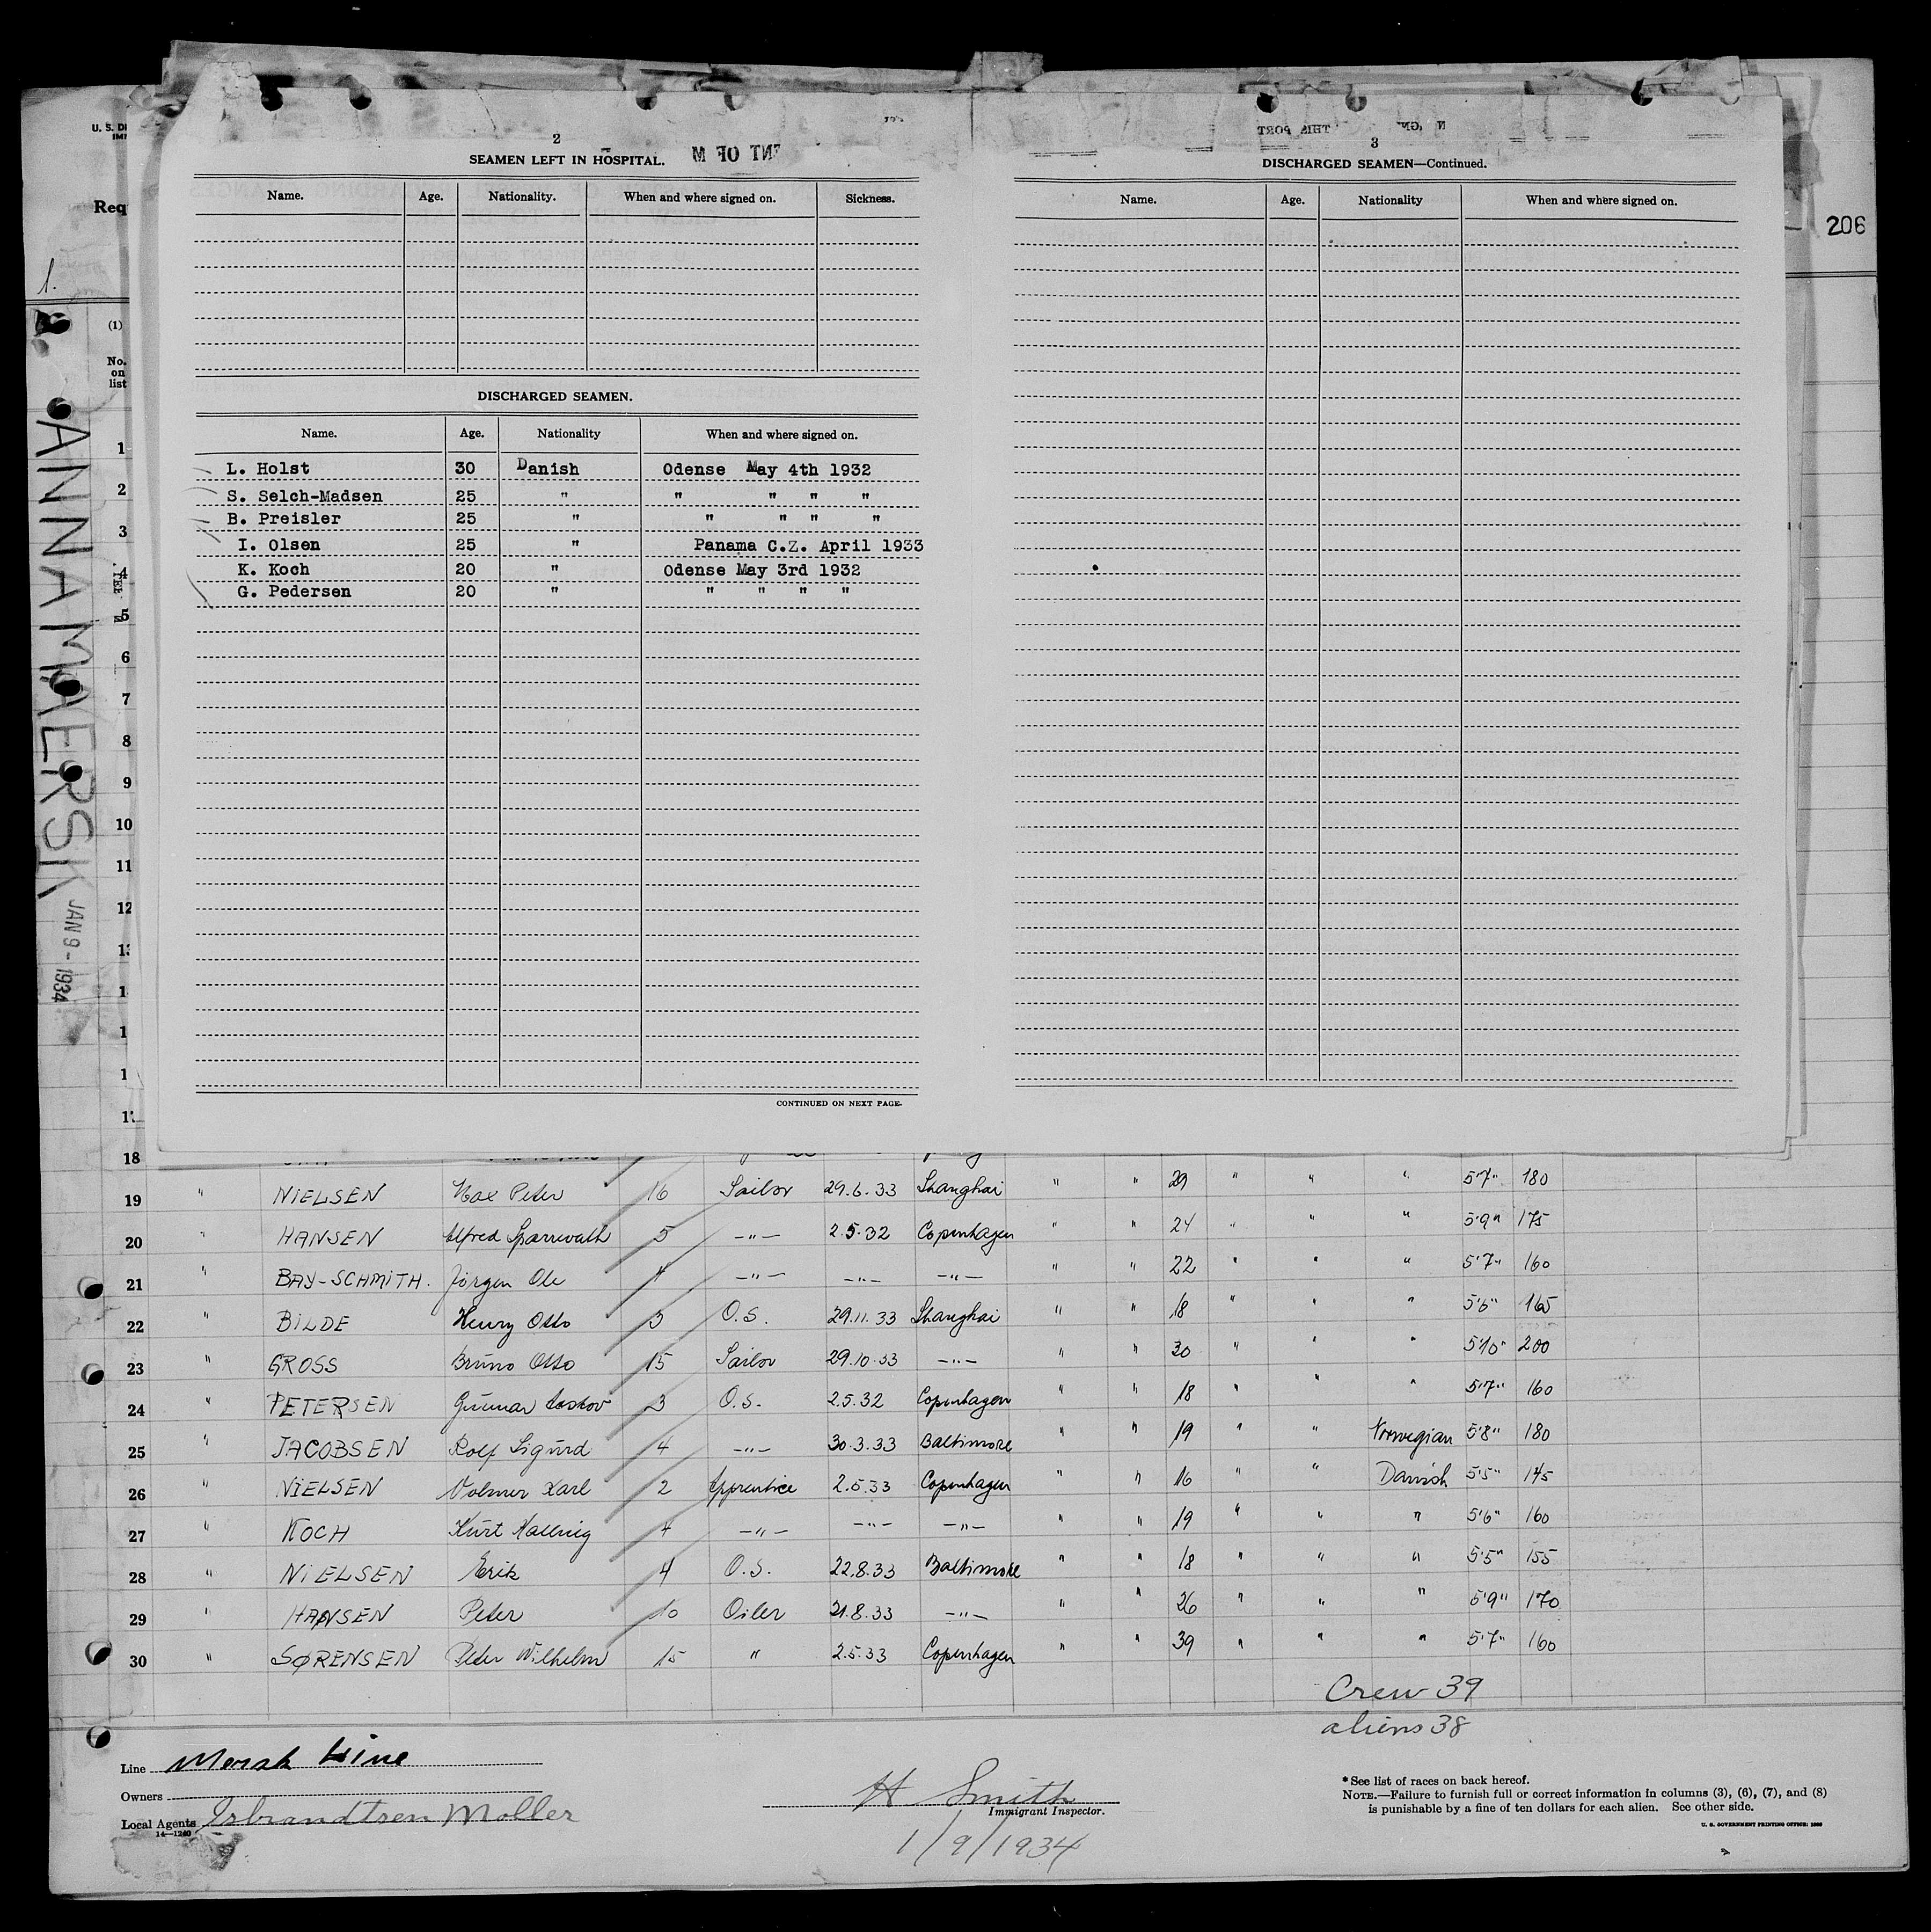 U. S. D
IM
Req
206
1.
(1)
No.
on
list
ANNA MAERSK
JAN 9 - 1934
2
SEAMEN LEFT IN HOSPITAL.
Name. Age. Nationality. When and where signed on. Sickness.
DISCHARGED SEAMEN.
Name. Age. Nationality When and where signed on.
L. Holst 30 Danish Odense May 4th 1932
S. Selch-Madsen 25 " " " " "
B. Preisler 25 " " " " "
I. Olsen 25 " Panama C.Z. April 1933
K. Koch 20 " Odense May 3rd 1932
G. Pedersen 20 " " " " "
CONTINUED ON NEXT PAGE.
3
DISCHARGED SEAMEN—Continued.
Name. Age. Nationality When and where signed on.
1
2
3
4
5
6
7
8
9
10
11
12
18
19 " NIELSEN Peter 16 Sailor 29.6.33 Shanghai " " 29 " " " 5'7" 180
20 " HANSEN Alfred 5 —"— 2.5.32 Copenhagen " " 24 " " " 5'9" 175
21 " BAY-SCHMITH. Jörgen Ole 4 —"— —"— —"— " " 22 " " " 5'7" 160
22 " BILDE Henry Otto 3 O.S. 29.11.33 Shanghai " " 18 " " " 5'6" 165
23 " GROSS Bruno Otto 15 Sailor 29.10.33 —"— " " 30 " " " 5'10" 200
24 " PETERSEN Gunnar 3 O.S. 2.5.32 Copenhagen " " 18 " " " 5'7" 160
25 " JACOBSEN Rolf Sigurd 4 —"— 30.3.33 Baltimore " " 19 " " Norwegian 5'8" 180
26 " NIELSEN Volmer Karl 2 Apprentice 2.5.33 Copenhagen " " 16 " " Danish 5'5" 145
27 " KOCH Kurt 4 —"— —"— —"— " " 19 " " " 5'6" 160
28 " NIELSEN Erik 4 O.S. 22.8.33 Baltimore " " 18 " " " 5'5" 155
29 " HANSEN Peter 10 Oiler 21.8.33 —"— " " 26 " " " 5'9" 170
30 " SØRENSEN Peter Wilhelm 15 " 2.5.33 Copenhagen " " 39 " " " 5'7" 160
Crew 39
aliens 38
Line Mersk Line
Owners
Local Agents Isbrandtsen Moller
14—1240
H Smith
Immigrant Inspector.
1/9/1934
* See list of races on back hereof.
NOTE.—Failure to furnish full or correct information in columns (3), (6), (7), and (8)
is punishable by a fine of ten dollars for each alien. See other side.
U. S. GOVERNMENT PRINTING OFFICE: 1930